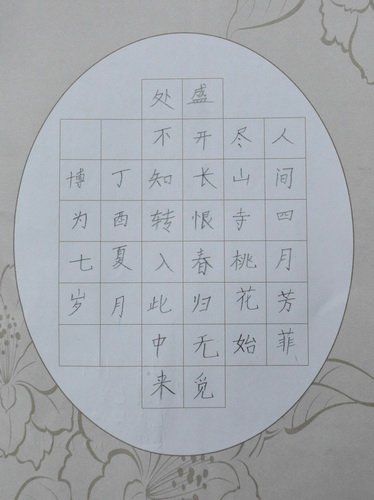 人间四月芳菲
尽山寺桃花始
盛开长恨春归无觅
处不知转入此中来
丁酉夏月
博为七岁